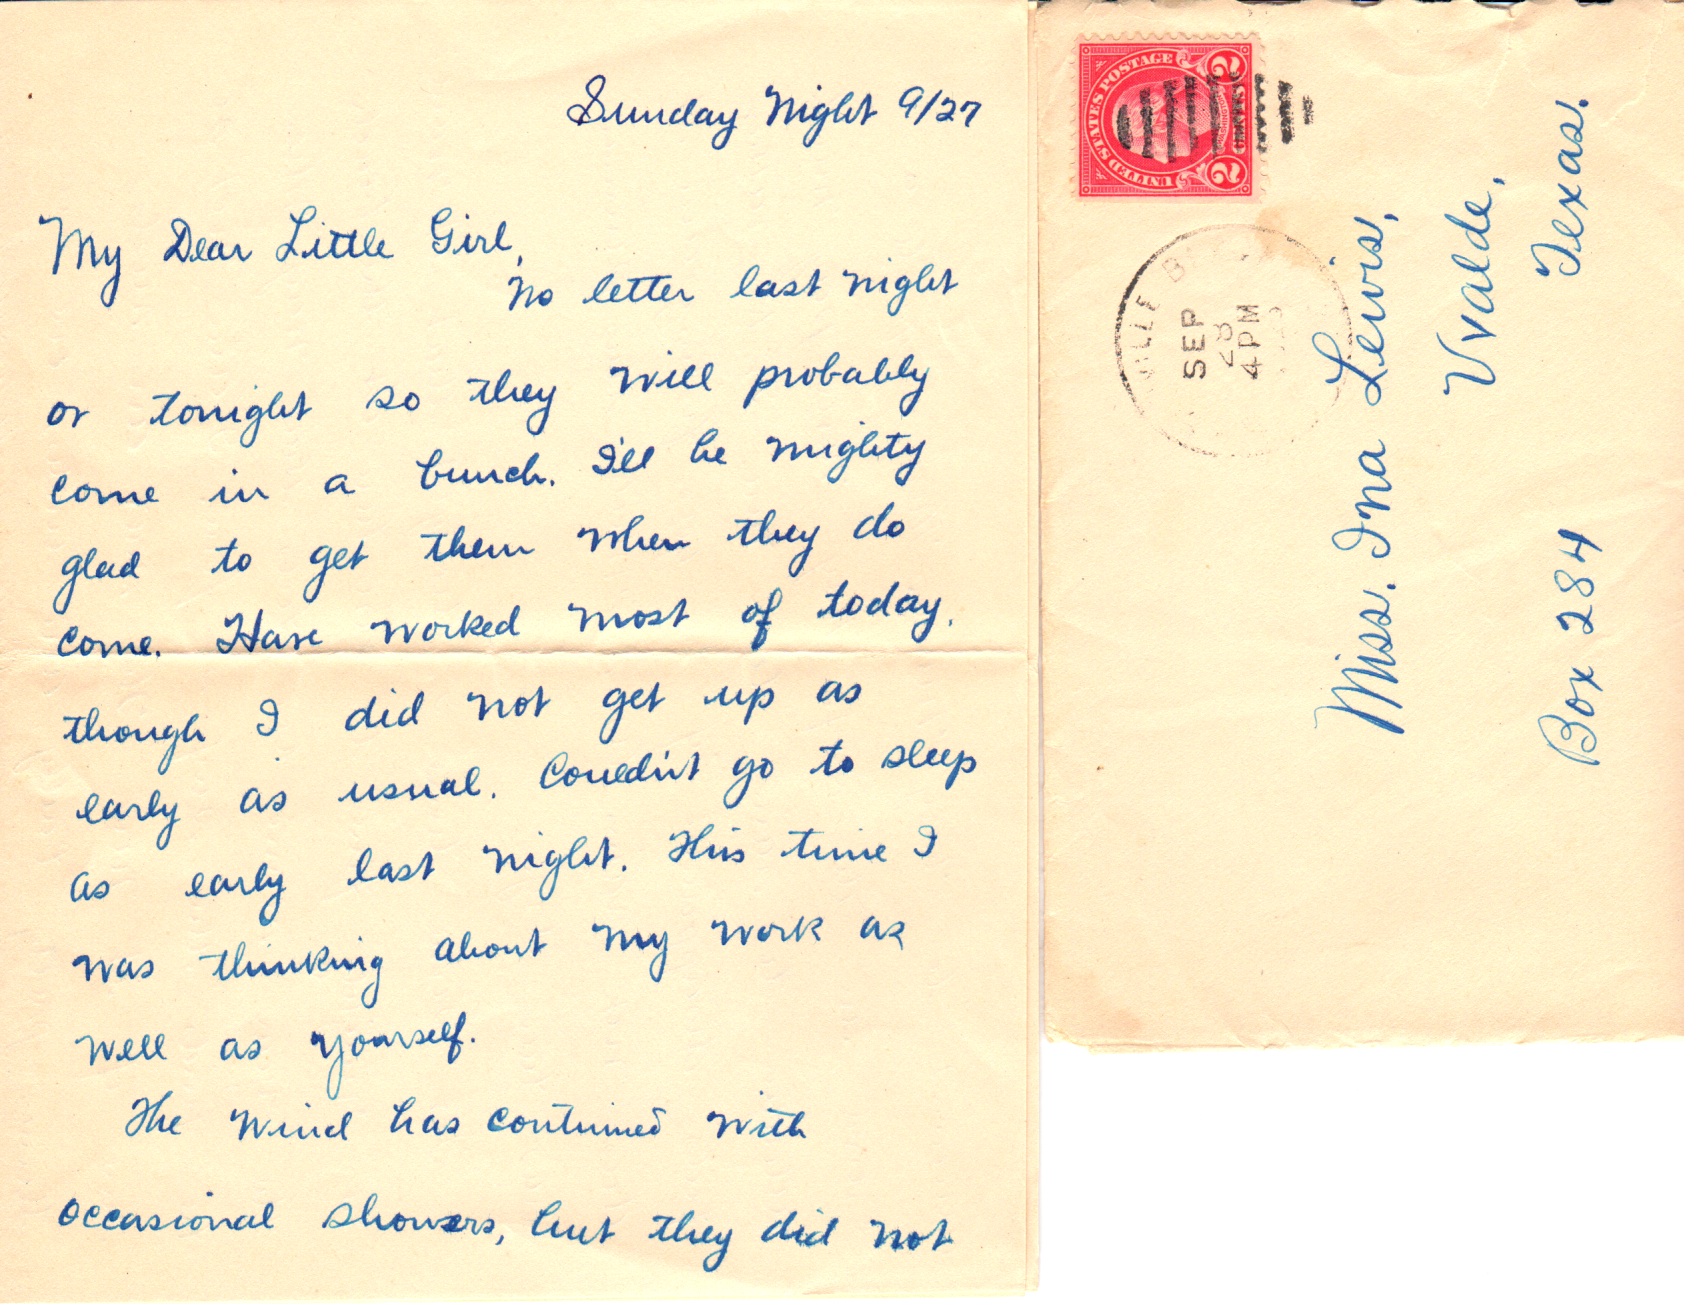 Sunday Night 9/27
My Dear Little Girl,
No letter last night
or tonight so they will probably
come in a bunch. I'll be mighty
glad to get them when they do
come. Have worked most of today,
though I did not get up as
early as usual. Couldn't go to sleep
as early last night. This time I
was thinking about my work as
well as yourself.
The wind has continued with
occasional showers, but they did not
UNITED STATES POSTAGE
2 CENTS 2
SEP
28
4 PM
Miss. Ina Lewis,
Uvalde,
Box 284 Texas.